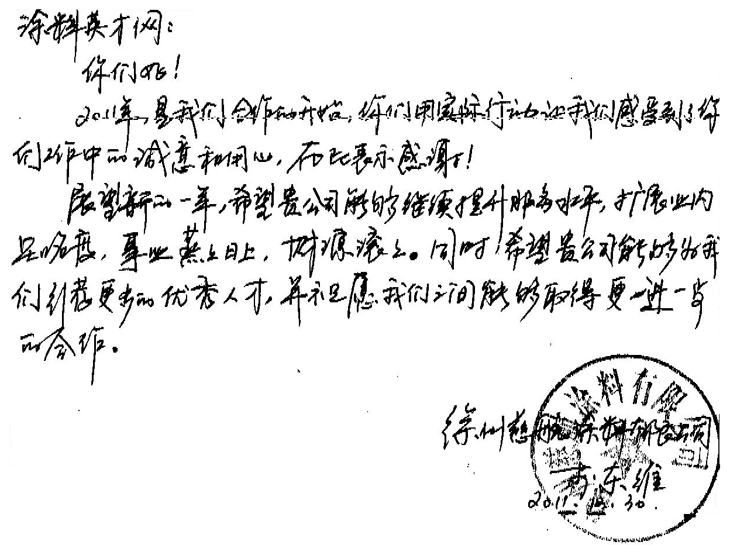 涂料英才网:
你们好!
2011年,是我们合作的开始,你们用实际行动让我们感受到了你
们工作中的诚意和用心,在此表示感谢!
展望新的一年,希望贵公司能够继续提升服务水平,扩展业内
知名度,事业蒸蒸日上,财源滚滚。同时,希望贵公司能够为我
们引荐更多的优秀人才,并祝愿我们之间能够取得更进一步
的合作。
徐州慈航涂料有限公司
东维
2011.12.30.
涂料有限